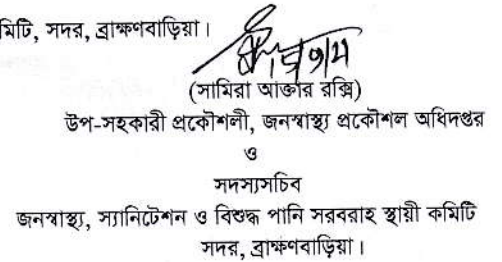 মিটি, সদর, ব্রাহ্মণবাড়িয়া।
(সামিরা আক্তার রক্সি)
উপ-সহকারী প্রকৌশলী, জনস্বাস্থ্য প্রকৌশল অধিদপ্তর
ও
সদস্যসচিব
জনস্বাস্থ্য, স্যানিটেশন ও বিশুদ্ধ পানি সরবরাহ স্থায়ী কমিটি
সদর, ব্রাহ্মণবাড়িয়া।